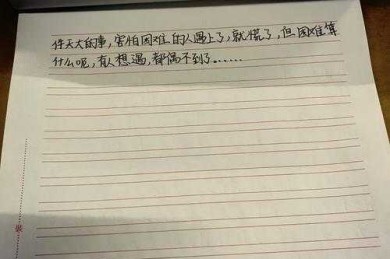 件天大的事，害怕困难的人遇上了，就慌了，但困难算
什么呢，有人想遇，都偶不到了……